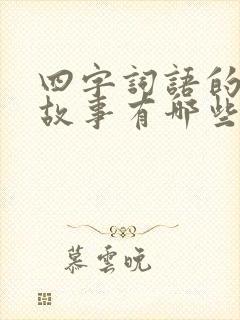 四字詞語的
故事有哪些
慕雲晚